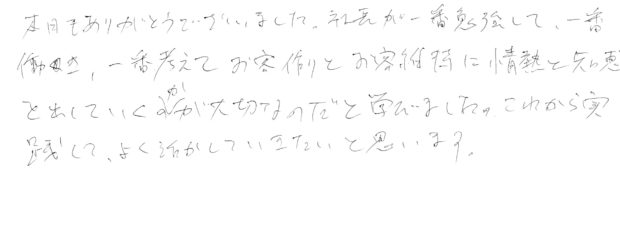 本日もありがとうございました。社長が一番勉強して、一番
働き、一番考えて お客作りと お客維持に 情熱と知恵
と出していく が大切なのだと学びました。これから実
践して、よく活かしていきたいと思います。